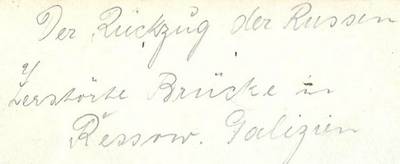 Der Rückzug der Russen
Zerstörte Brücke in
Ressow. Galizien